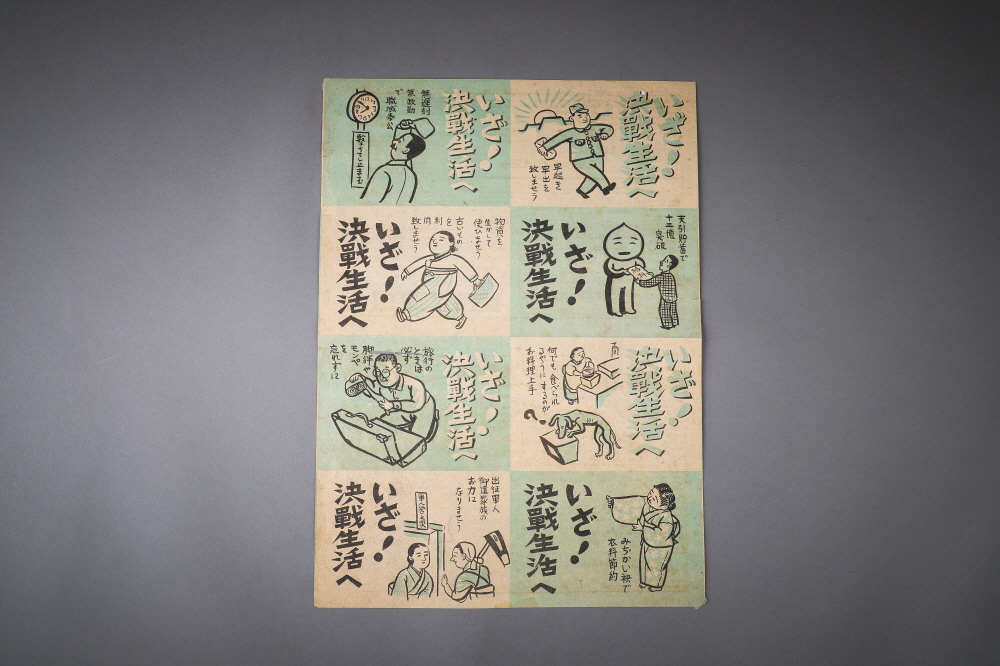 いざ!
決戰生活へ
早起き
早出を
致しませう
いざ!
決戰生活へ
無遅刻
無欠勤
で職域奉公
撃ちてし止まむ
天引貯蓄で
突破
いざ!
決戰生活へ
物資を
生かして
使ひませう
古いもの
を利用
致しませう
いざ!
決戰生活へ
いざ!
決戰生活へ
何でも食べられ
るやうにするのが
お料理上手
いざ!
決戰生活へ
旅行の
ときは
必ず
脚絆や
モンペ
を
忘れずに
みぢかい袂で
衣料節約
いざ!
決戰生活へ
出征軍人
御遺家族の
お力に
なりませう
いざ!
決戰生活へ